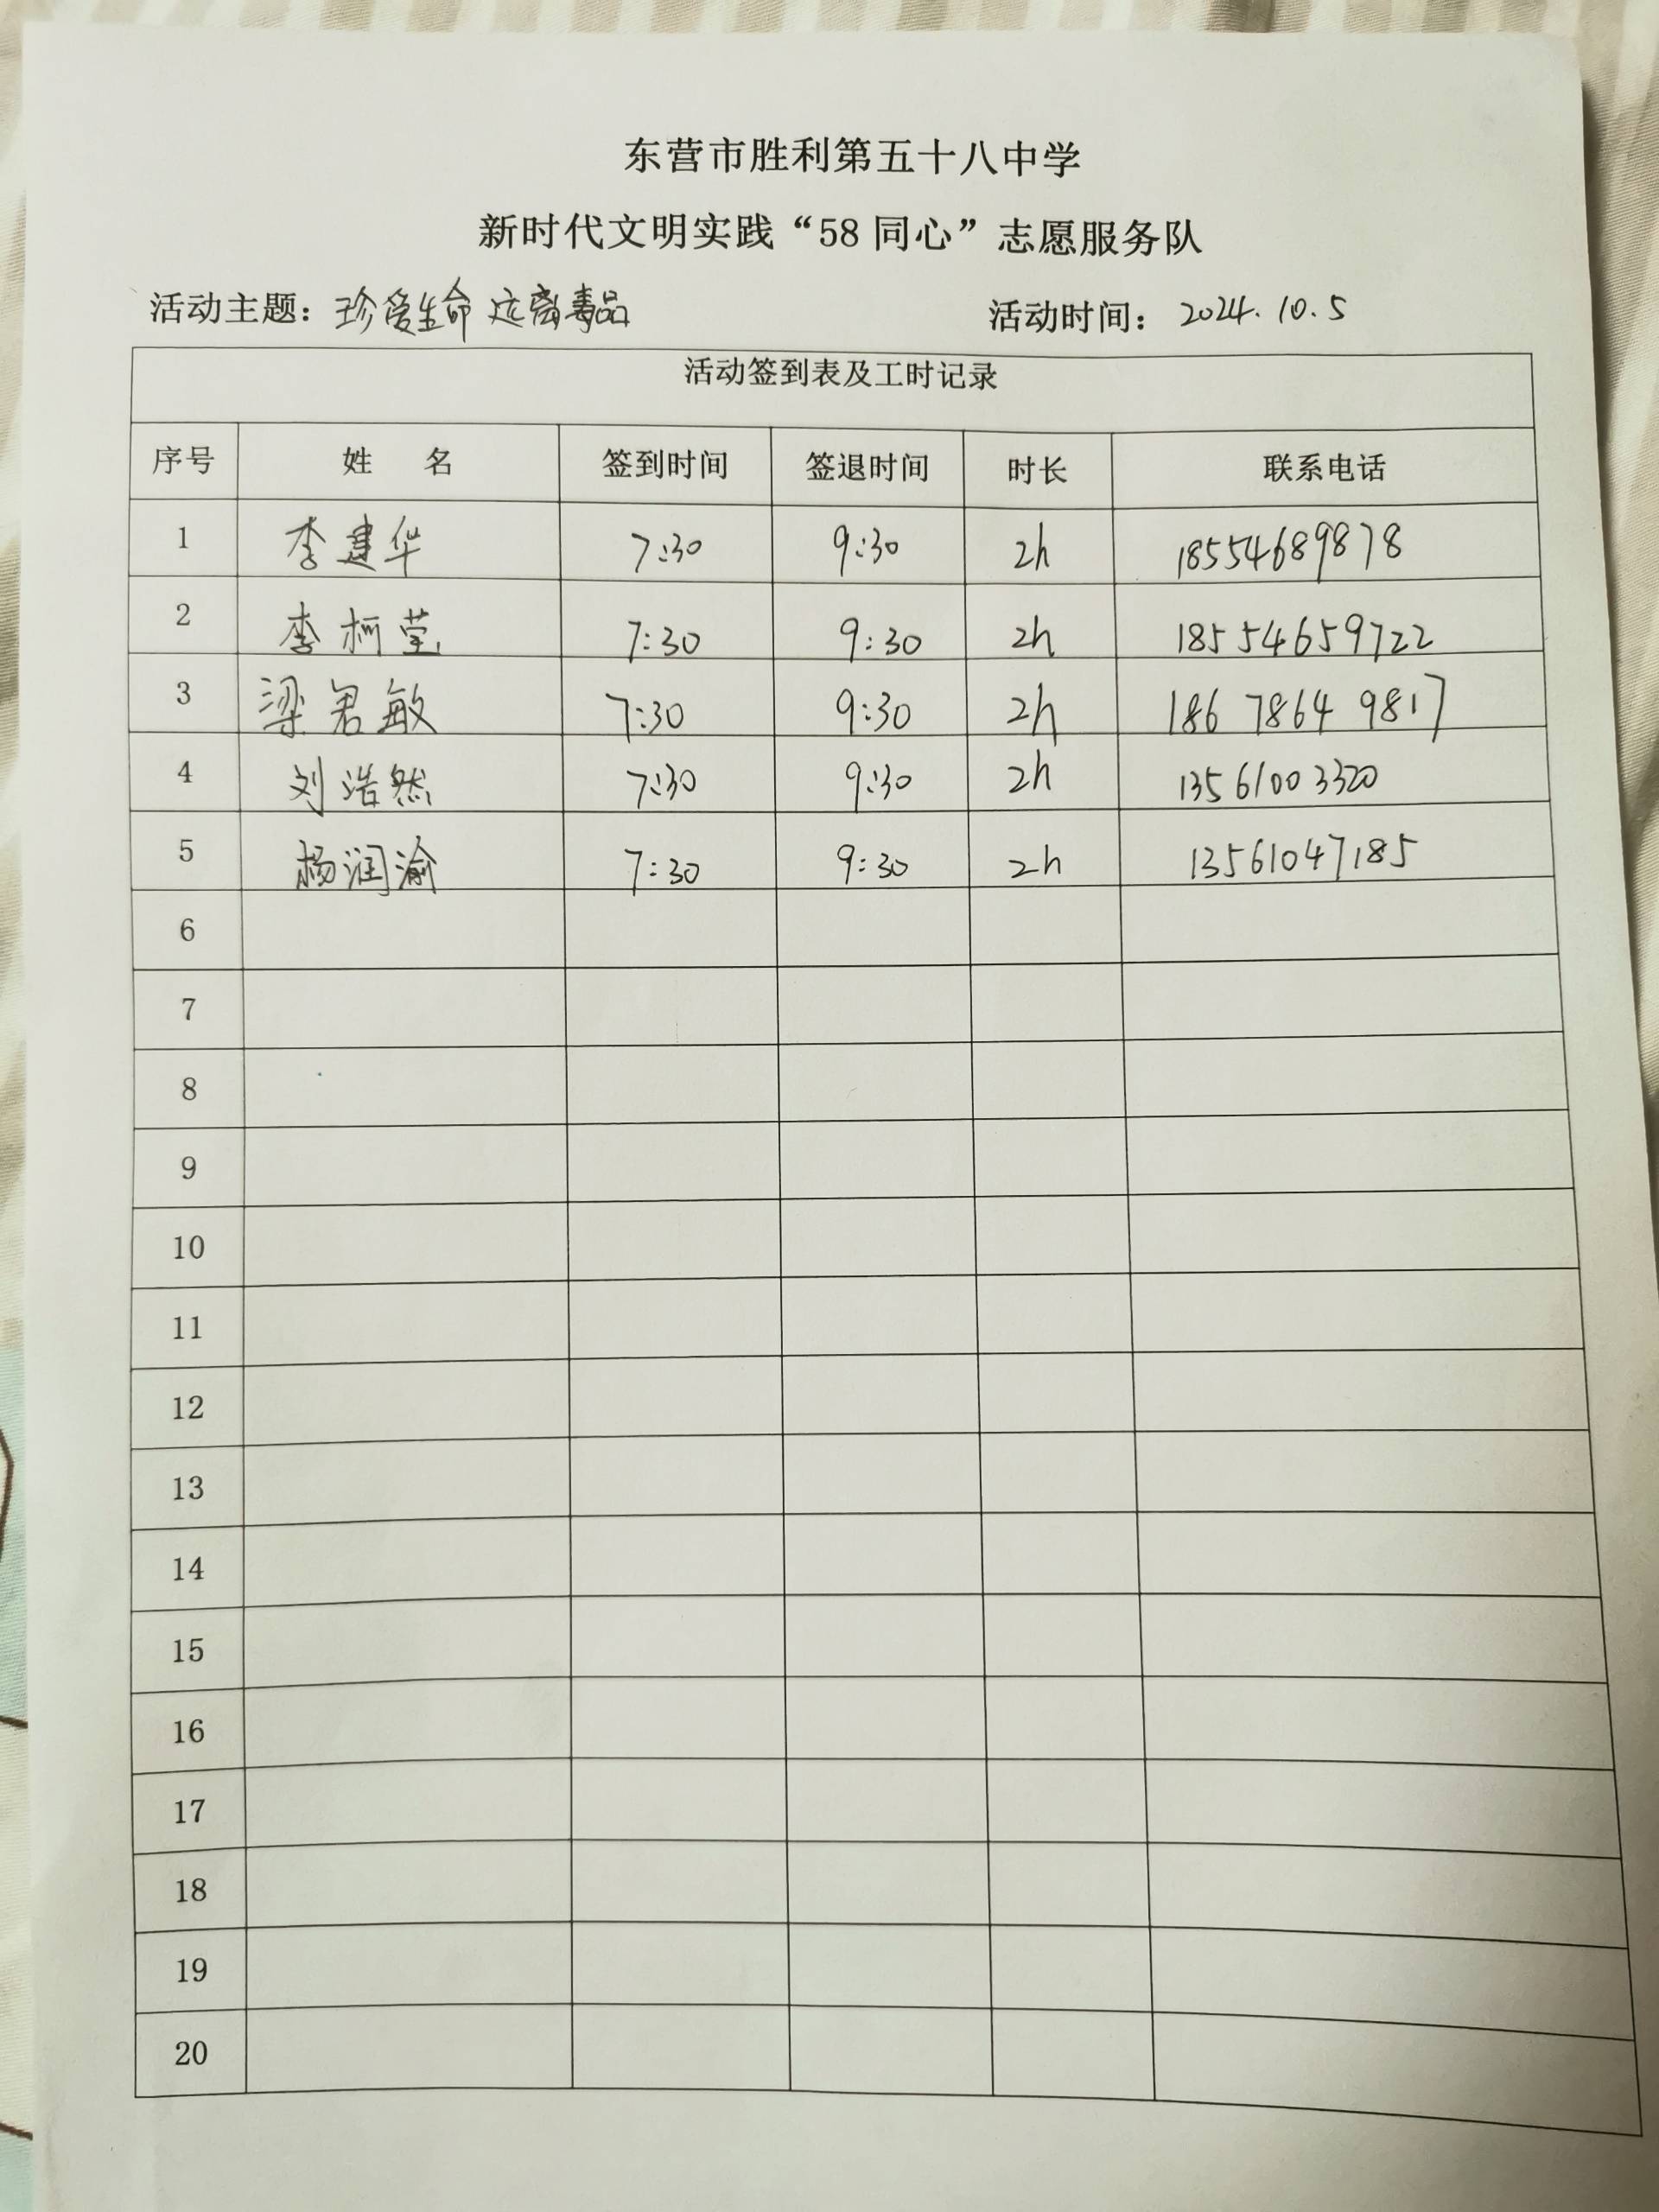 东营市胜利第五十八中学
新时代文明实践“58 同心”志愿服务队
活动主题：珍爱生命 远离毒品 活动时间：2024.10.5
活动签到表及工时记录
序号 姓 名 签到时间 签退时间 时长 联系电话
1 李建华 7:30 9:30 2h 18554689878
2 李柯莹 7:30 9:30 2h 18554659722
3 梁君敏 7:30 9:30 2h 186 7864 9817
4 刘浩然 7:30 9:30 2h 13561003320
5 杨润渝 7:30 9:30 2h 13561047185
6
7
8
9
10
11
12
13
14
15
16
17
18
19
20